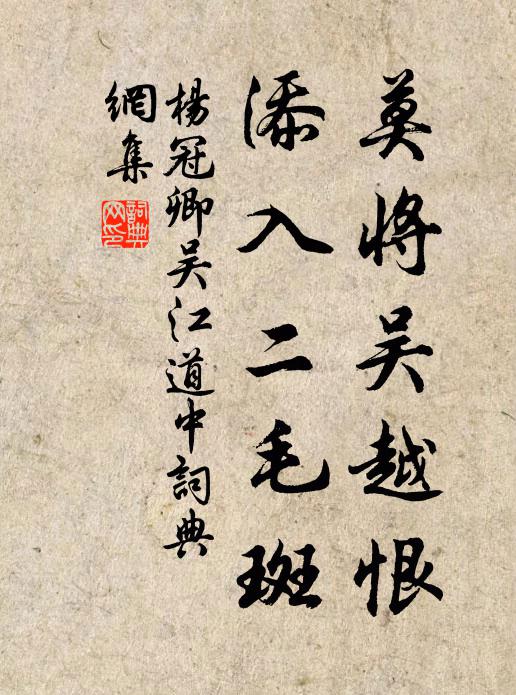 莫將吳越恨
添入二毛斑
楊冠卿吳江道中詞典
網集
詞典
网印